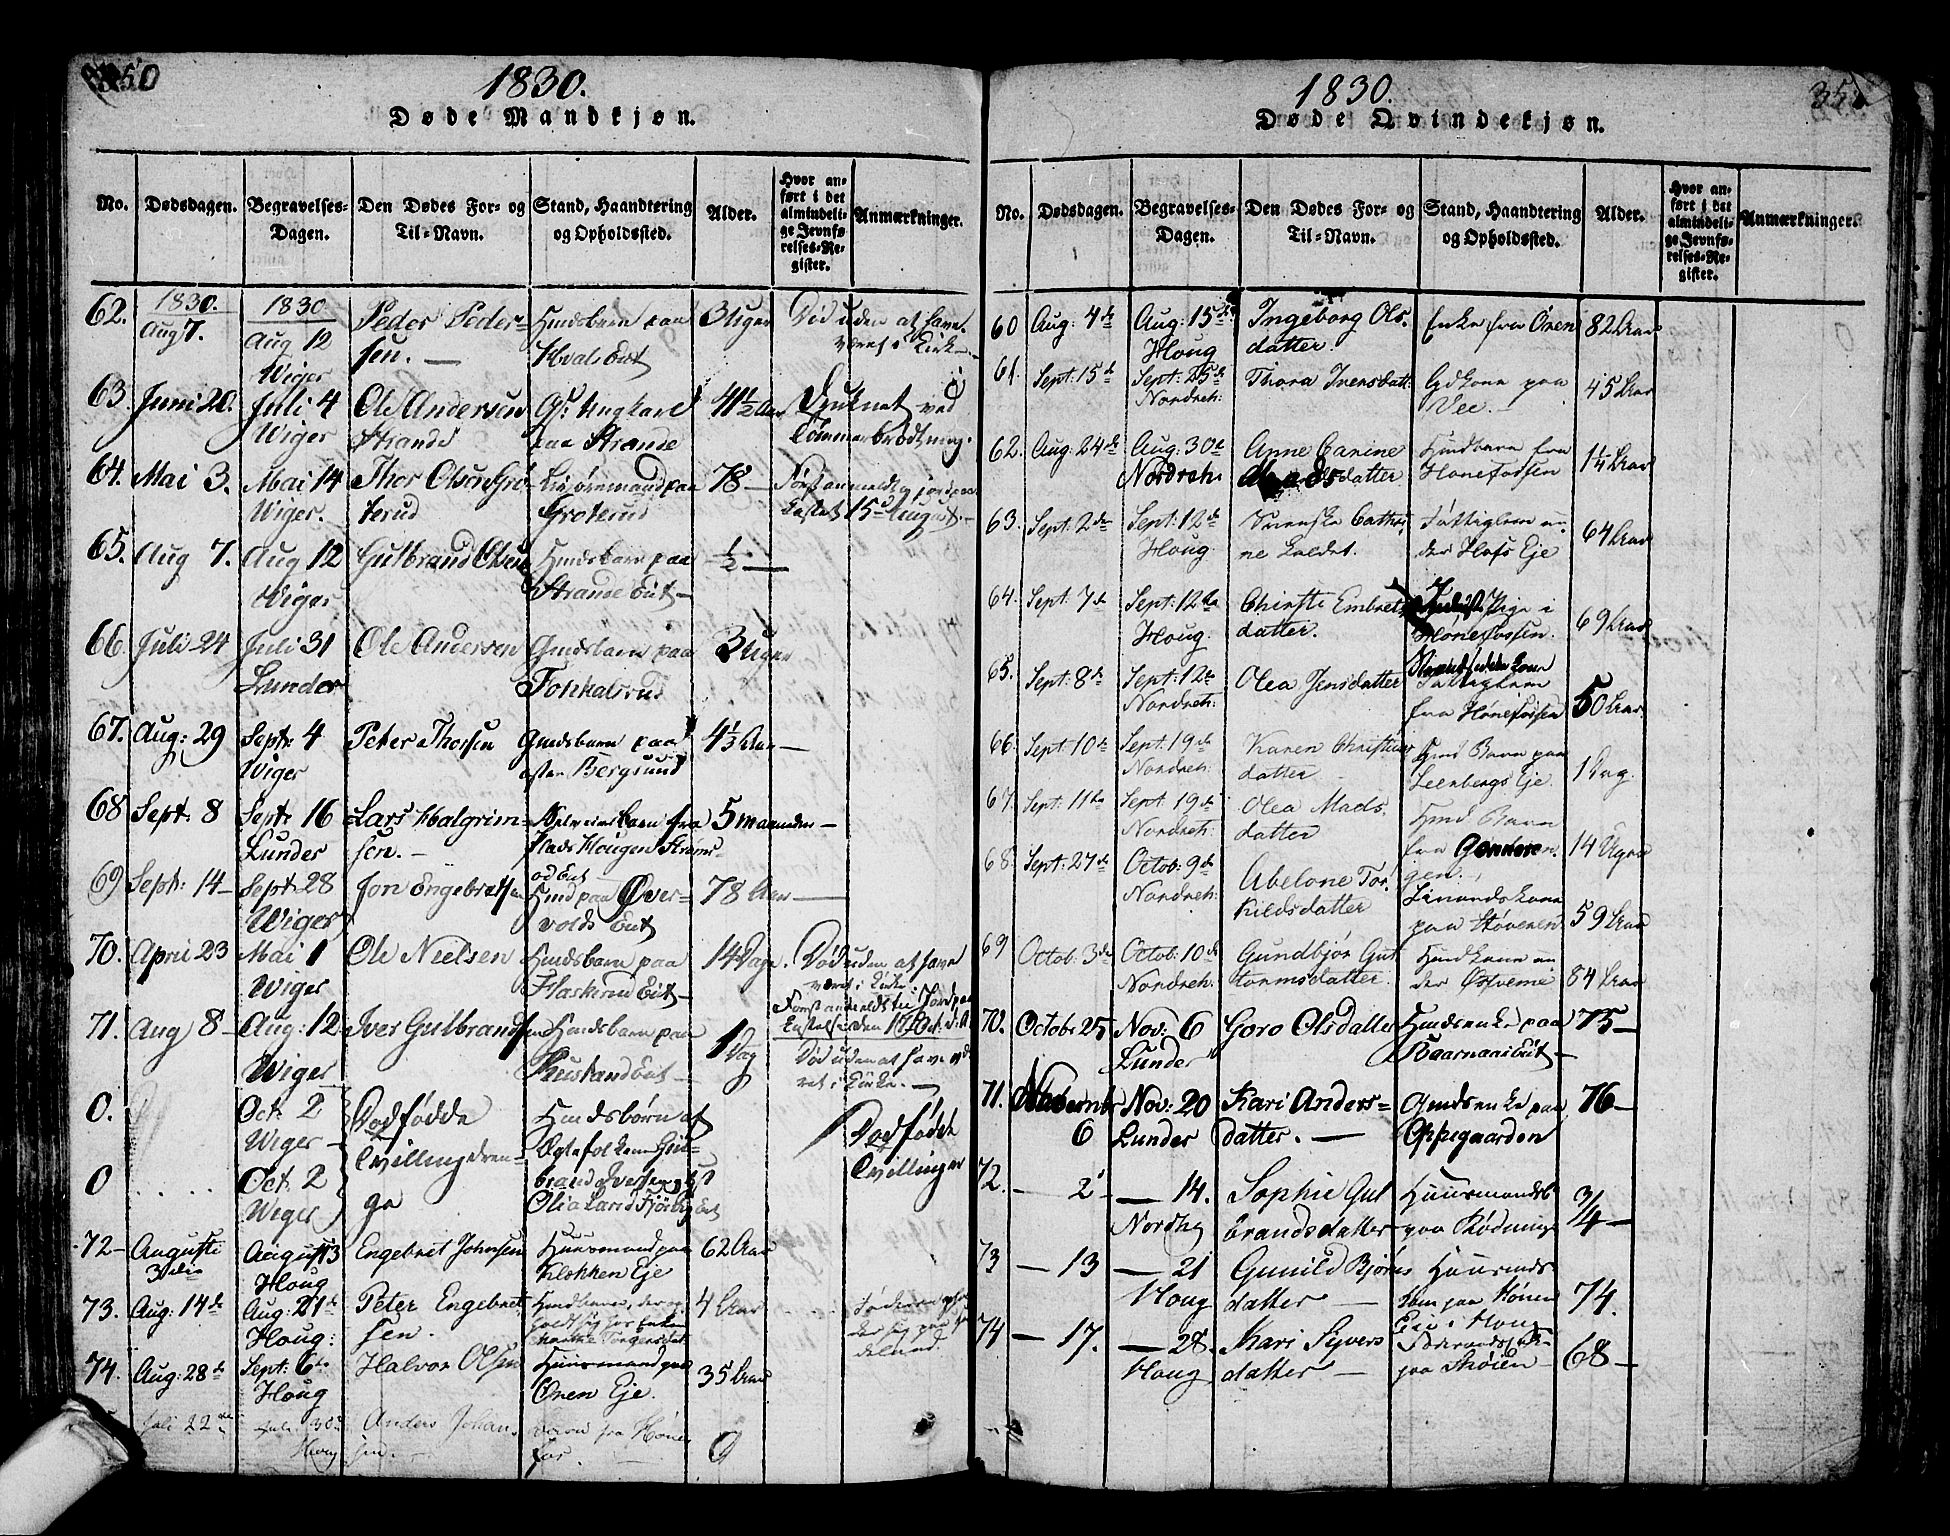 350
1830.
Døde Mandkjøn.
No.
Dødsdagen.
Begravelses-
Dagen.
Den Dødes For- og
Til-Navn.
Stand, Haandtering
og Opholdssted.
Alder.
Hvor an-
ført i det
almindeli-
ge Jevnfø-
relses-Re-
gister.
Anmærkninger.
62. 1830. Aug 7. 1830 Aug 12 Wiger
Peder Peder-
sen. —
Huusbarn paa
Hvals Eiet
3 Uger
Død uden at have
været i Kirke
63. Juni 20. Juli 4 Wiger
Ole Andersen
Strande
paa Strande
41½ Aar
Druknet ved
Tømmerbrødtning.
64. Mai 3. Mai 14 Wiger.
Thor Olsen Gro-
terud
Groterud
78 —
Først anmeldt og jordpaa-
kastet 15 d August. —
65. Aug 7. Aug 12 Wiger
Gulbrand Olsen
Huusbarn paa
Strande Eiet —
½ —
66. Juli 24 Juli 31 Lunder
Ole Andersen
Gaardsbarn paa
3 Uger
67. Aug: 29 Sept: 4 Wiger
Peter Thorsen
Gaardsbarn paa
østen Bergsund
4½ Aar —
68 Sept: 8 Sept: 16 Lunder
Lars Halgrim-
sen. —
barn fra
5 maaneder —
69 Sept: 14 — Sept: 28 Wiger
Jon Engebretsen
Huusd paa Øver-
volds Eiet
78 Aar —
70. April 23 Mai 1 Wiger
Ole Nielsen
Huusbarn paa
Flaskerud Eiet —
14 Dage.
Død uden at have
været i Kirke.
71. Aug 8 — Aug: 12 Wiger
Iver Gulbrandsen
Huusbarn paa
1 Dag
Død uden at have væ-
ret i Kirke. —
0. Oct: 2 Wiger —
Dødfødde
Tvillingdren-
ge
Huusbørn af
Ægtefolkene Gul-
brand Iversen og
Dødfødde
Tvillinger
0 .... Oct: 2 Wiger
72 — Augusti 3die August 13 Houg
Engebret Johnsen
Huusmand paa
Klokken Eje
62 Aar
73. Aug: 14 de Aug: 21 de Houg:
Peter Engebret
sen.
4 Aar
74. Aug: 28 de Sept: 6 te Houg
Halvor Olsen
Huusmand paa
Onen Eje.
35 Aar
Juli 22 Juli 30 Houg
Anders Johan
sen. —
fra Høne
fos.
0
1830.
Døde Qvindekjøn.
No.
Dødsdagen.
Begravelses-
Dagen.
Den Dødes For- og
Til-Navn.
Stand, Haandtering
og Opholdssted.
Alder.
Hvor an-
ført i det
almindeli-
ge Jevnfø-
relses-Re-
gister.
Anmærkninger.
60 Aug: 4 de Aug: 15 de Houg
Ingeborg Ols.
datter.
Enke fra Onen
82 Aar
61. Sept: 15 d Sept: 25 de Nordreh:
Thora Iversdatt:
Gdkone paa
Vee. —
45 Aar
62. Aug: 24 de Aug: 30 d Nordreh:
Anne Carine
Madsdatter
Huusbarn fra
Hønefossen
1¼ Aar
63. Sept: 2 den Sept: 12 de Houg
Svenske Cathri
ne kaldet.
Fattiglem un
der Hofs Eje
64 Aar
64. Sept: 7 de Sept: 12 te Houg.
Chirsti Embrets
datter.
Pige i
Hønefossen.
69 Aar
65. Sept: 8 de Sept: 12 te Nordreh:
Olea Jensdatter
Fattiglem
fra Hønefossen
50 Aar.
66. Sept: 10 de Sept: 19 de Nordreh:
Karen Christians
datter —
Hmd Barn paa
Leenbergs Eje.
1 Dag.
67. Sept: 11 te Sept: 19 de Nordreh:
Olea Mads.
datter
Hmd Barn
fra
14 Uger
68. Sept: 27 de Octob: 9 de Nordreh:
Abelone Tor.
kildsdatter
paa Støveren
59 Aar
69 Octob: 3 de Octob: 10 de Nordreh:
Gundbjør Gut
tormsdatter.
Huuskone un
der Østveme
84 Aar
70. October 25 Nov: 6 Lunder
Goro Olsdatter
Huusenke paa
75 —
71. November 6 Nov: 20 Lunder
Kari Anders-
datter. —
Gaardsenke paa
Oppegaarden
76 —
72. — 2 — 14. Nordhg
Sophie Gul
brandsdatter
Huusmandsb
paa Rødning
¾ —
73 — 13 — 21 Houg
Gunild Bjørns
datter —
Huusmds
kone paa Hønen
Eie i Houg
74.
74 — 17. — 28. Houg
Kari Syvers
datter —
paa Skøien —
68 —